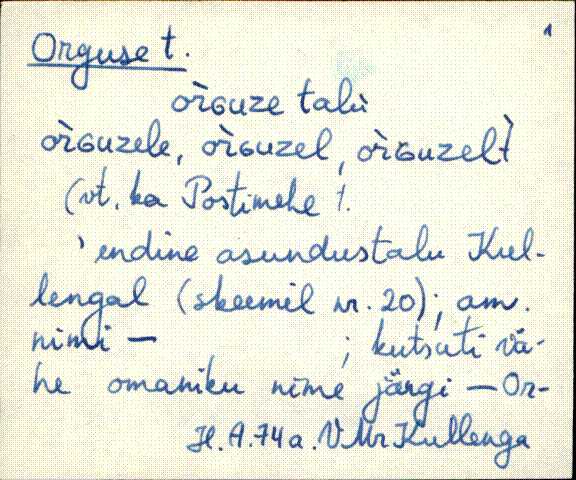 1
Orguse t.
òrɢuze talù
òrɢuzele, òrɢuzel, òrɢuzelt
(vt. ka Postimehe t.
' endine asundustalu Kul-
lengal (skeemil nr. 20); am.
nimi — ; kutsuti vä-
he omaniku nime järgi — Or-
H. A. 74 a. VMr Kullenga